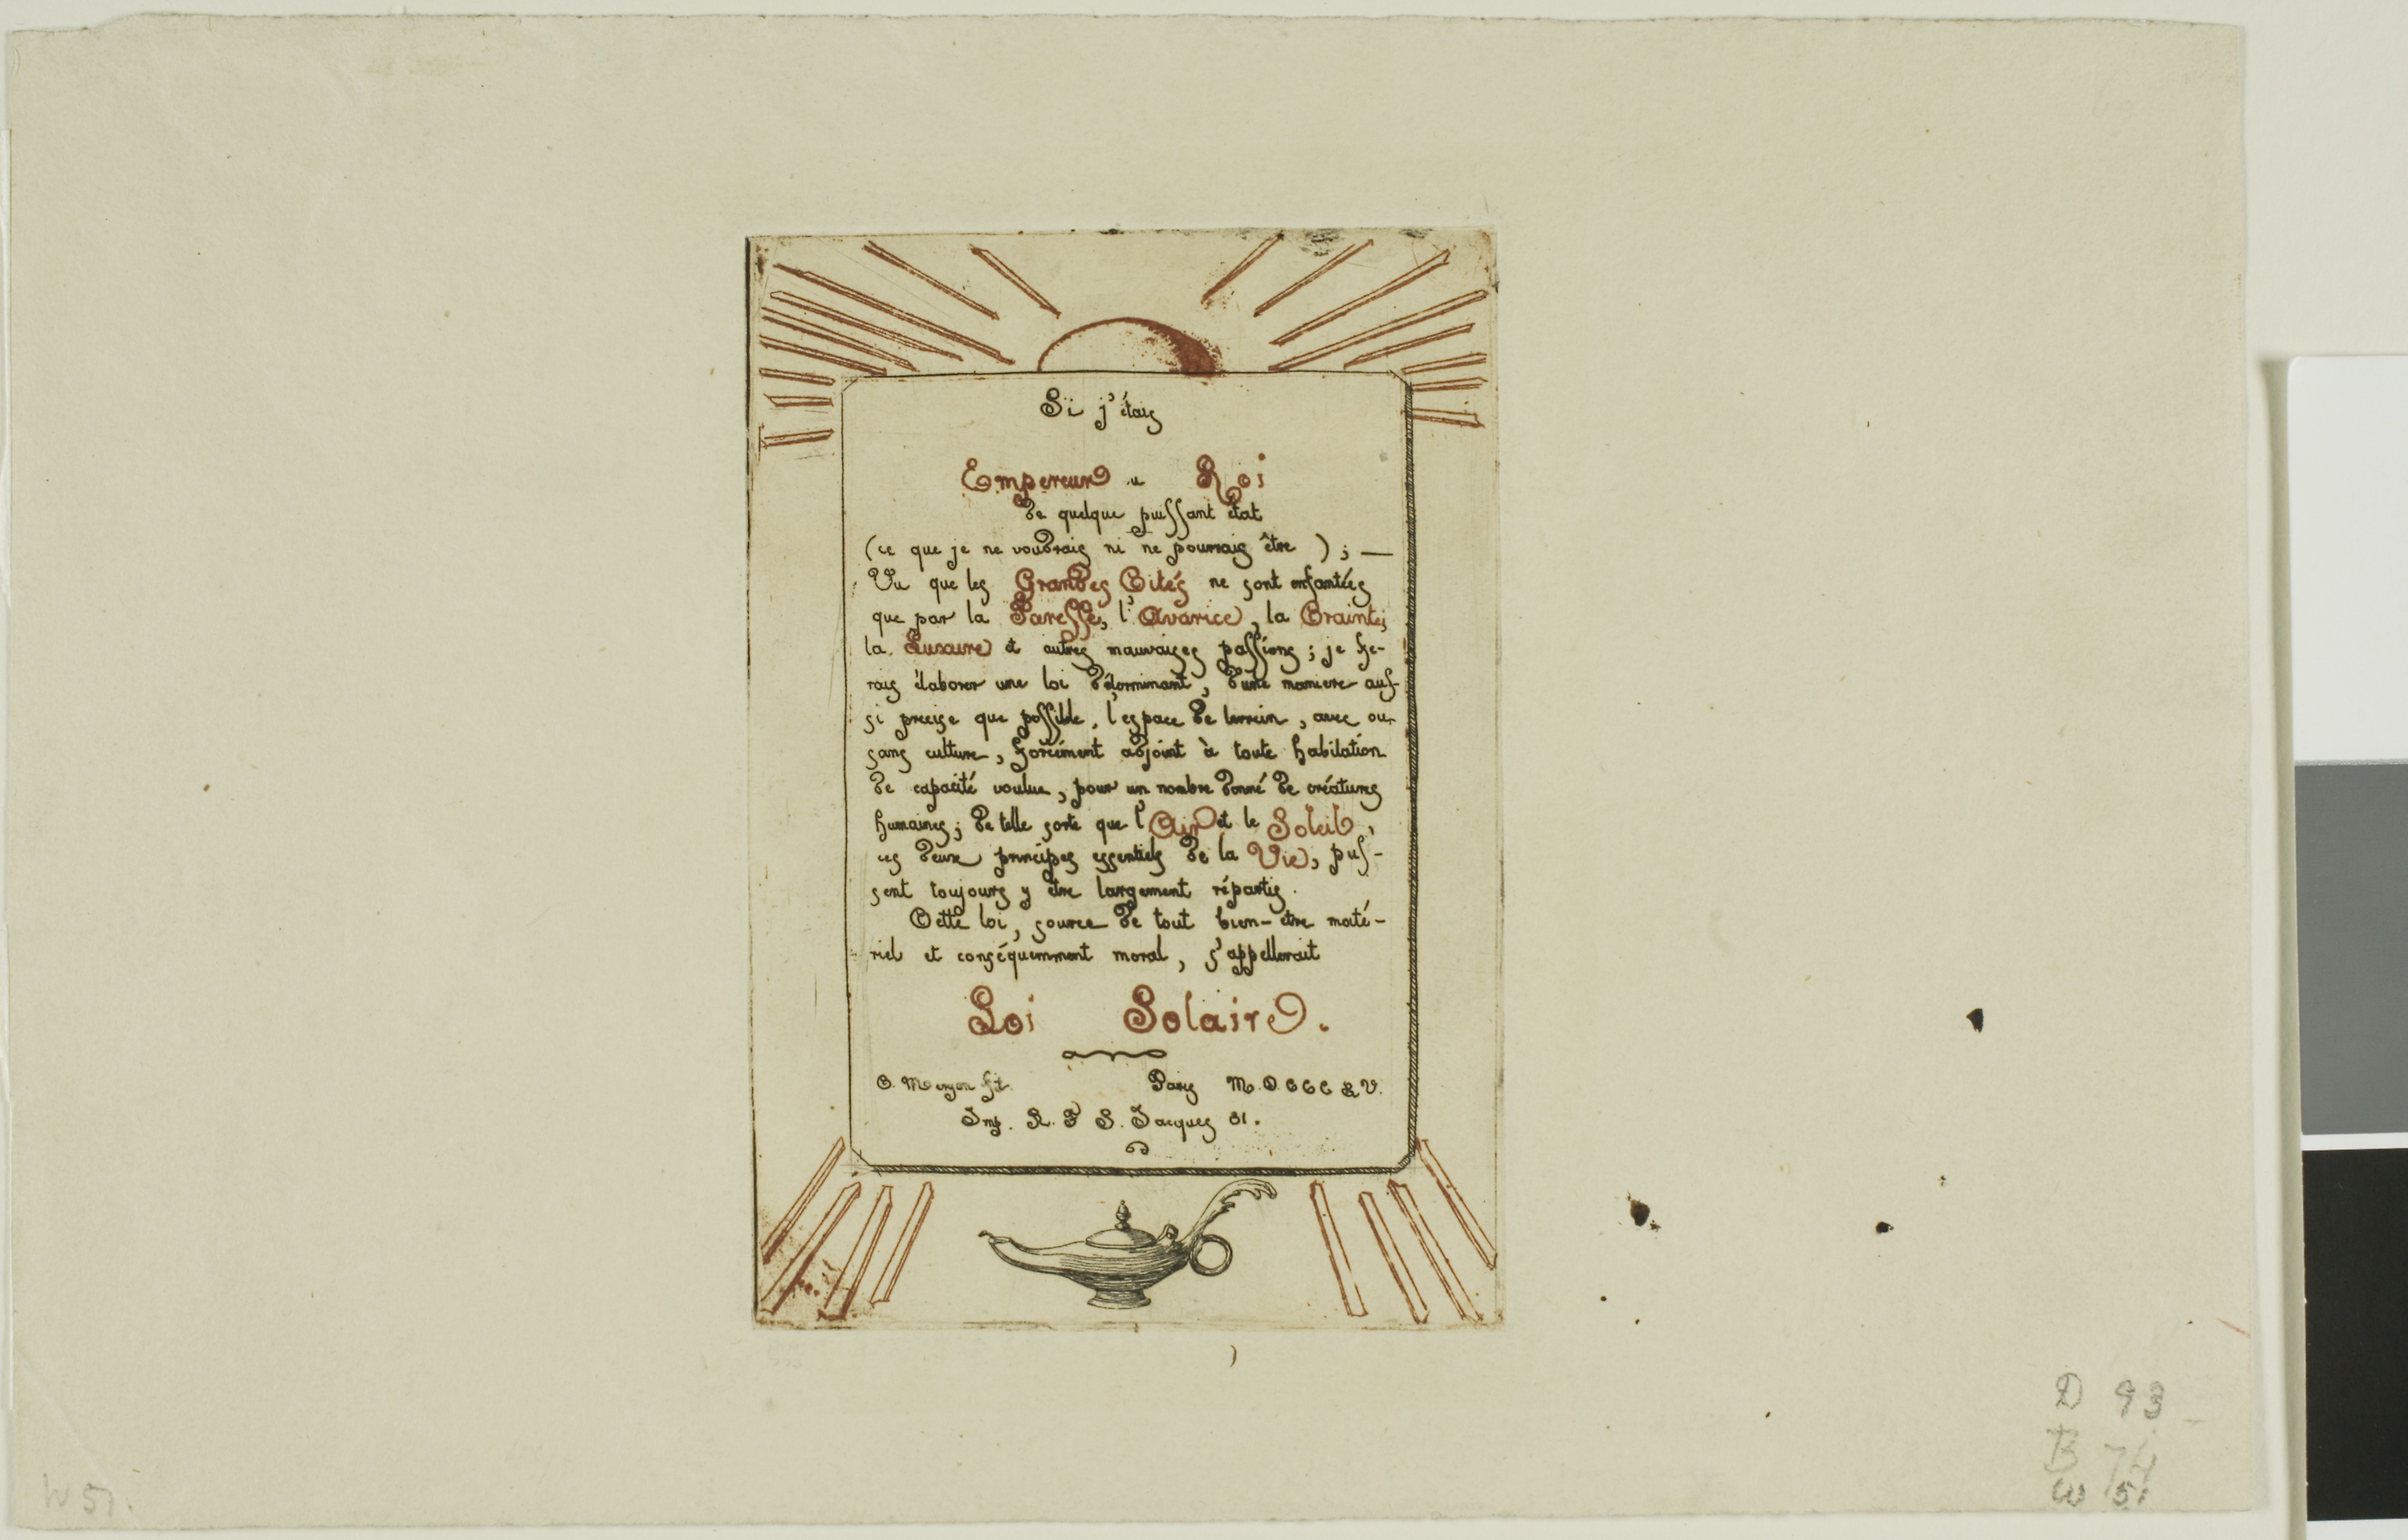 Si j'étais
Empereur u Roi
de quelque puissant état
(ce que je ne voudrais ni ne pourrais être) ; —
Vu que les Grandes Cités ne sont enfantées
que par la Paresse, l'Avarice, la Crainte,
la Luxure et autres mauvaises passions ; je fe-
rais élaborer une loi déterminant, d'une maniere aus-
si precise que possible, l'espace de terrein, avec ou
sans culture, forcément adjoint à toute habitation
de capacité voulue, pour un nombre donné de créatures
humaines ; de telle sorte que l'Air et le Soleil,
ces deux principes essentiels de la Vie, pus-
sent toujours y être largement répartis.
Cette loi, source de tout bien-etre maté-
riel et conséquemment moral, s'appellerait
Loi Solaire.
C. Meryon ft. Paris M.D.CCC LV.
Imp. R. F S. Jacques 81.
D 93
B 74
W 51
W 51.